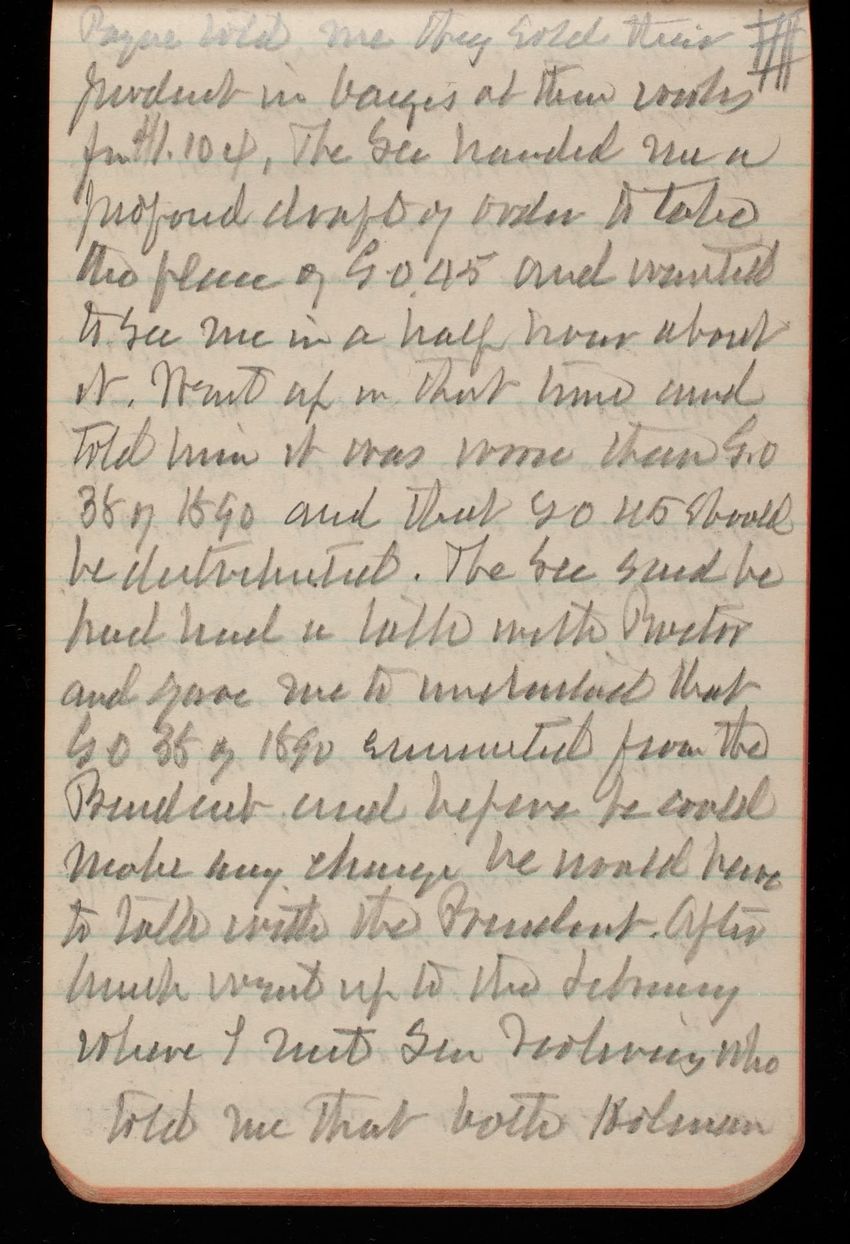 Payne told me they sold their
product in barges at their works
for $1.10 cy, The Sec handed me a
proposed draft of order to take
the place of G O 45 and wanted
to see me in a half hour about
it. Went up in that time and
told him it was worse than G.O
38 of 1890 and that G O 45 should
be distributed. The Sec said he
had had a talk with Proctor
and gave me to understand that
G O 38 of 1890 emanated from the
President and before he could
make any change he would have
to talk with the President. After
lunch went up to the library
where I met Gen who
told me that both Holman